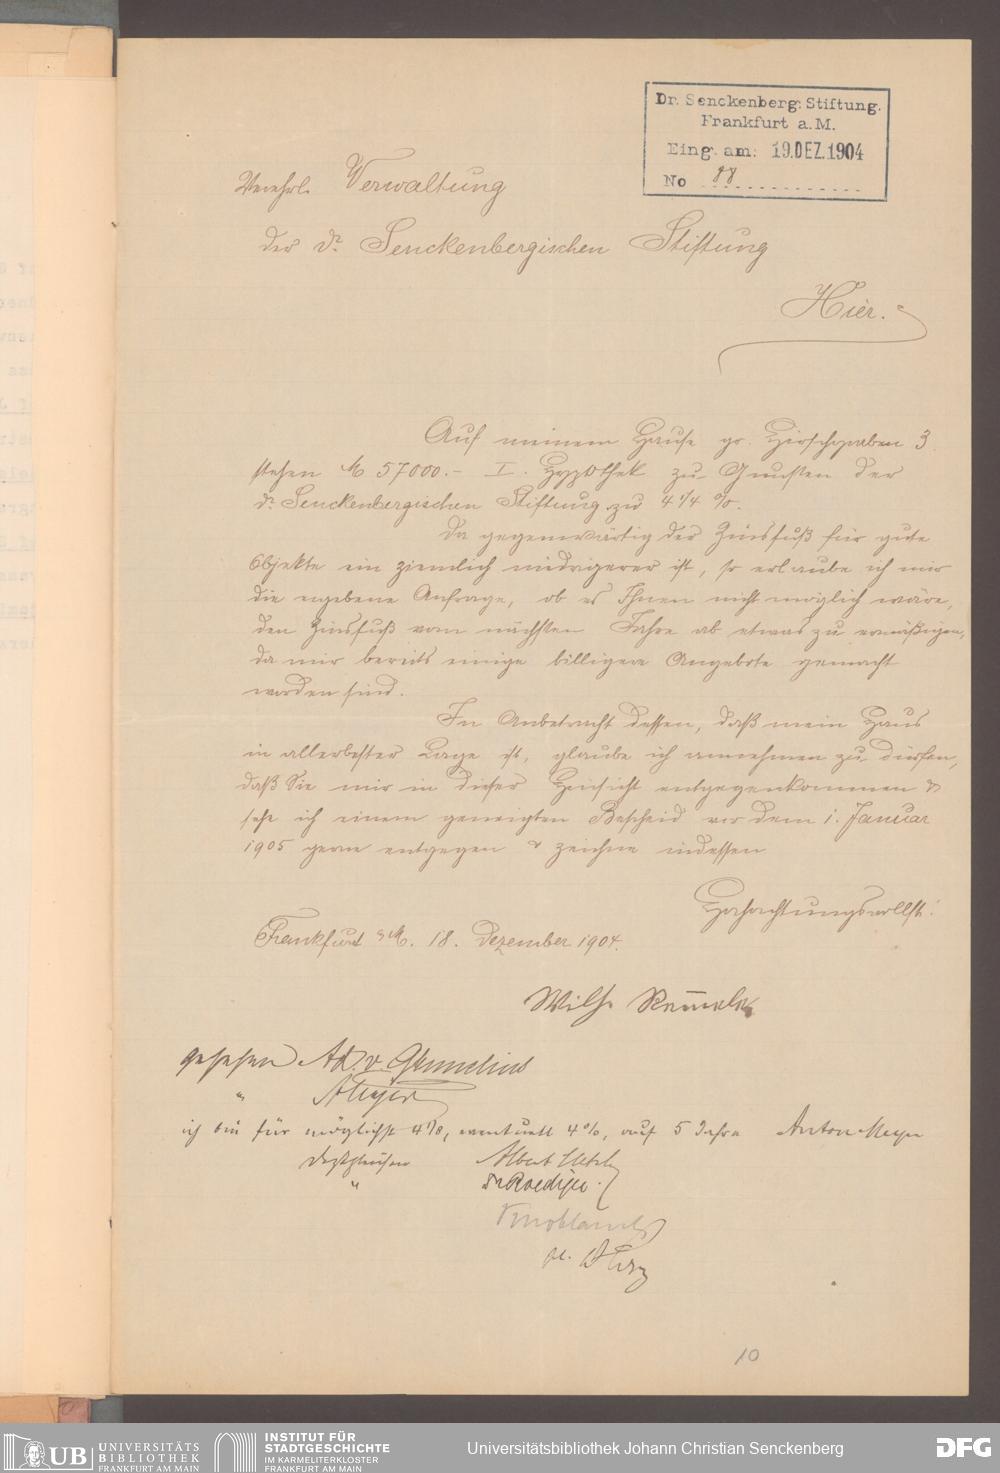 Dr. Senckenberg. Stiftung.
Frankfurt a.M.
Eing. am: 19.DEZ.1904
No 88
Verehrl. Verwaltung
der Dr. Senckenbergischen Stiftung
Hier.
Auf meinem Hause gr. Hirschgraben 3
stehen M 57000.- I. Hypothek zu Gunsten der
Dr. Senckenbergischen Stiftung zu 4 1/4 %.
Da gegenwärtig der Zinsfuß für gute
Objekte ein ziemlich niedrigerer ist, so erlaube ich mir
die ergebene Anfrage, ob es Ihnen nicht möglich wäre,
den Zinsfuß vom nächsten Jahre ab etwas zu ermäßigen,
da mir bereits einige billigere Angebote gemacht
worden sind.
In Anbetracht dessen, daß mein Haus
in allerbester Lage ist, glaube ich annehmen zu dürfen,
daß Sie mir in dieser Hinsicht entgegenkommen &
sehe ich einem geneigten Bescheid vor dem 1. Januar
1905 gerne entgegen & zeichne indessen
Hochachtungsvollst!
Frankfurt a/M. 18. Dezember 1904.
Wilh.
gesehen Ad. v.
"
ich bin für möglichst 4 1/8, eventuell 4 %, auf 5 Jahre Anton Meyer
Desgleichen Albert
" Dr Roediger
Knoblauch
10
UB UNIVERSITÄTS
BIBLIOTHEK
FRANKFURT AM MAIN
INSTITUT FÜR
STADTGESCHICHTE
IM KARMELITERKLOSTER
FRANKFURT AM MAIN
Universitätsbibliothek Johann Christian Senckenberg
DFG